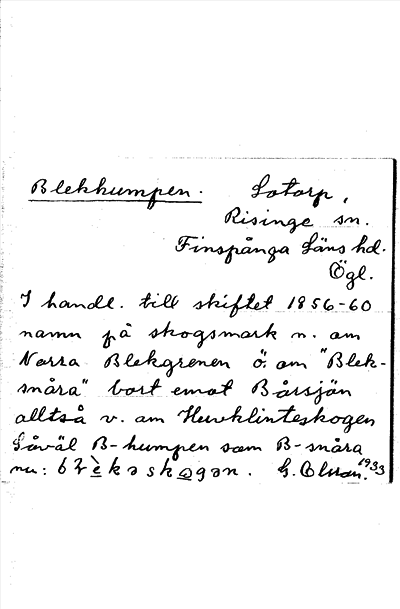 Blekhumpen. Lotorp,
Risinge sn.
Finspånga Läns hd.
Ögl.
I handl. till skiftet 1856-60
namn på skogsmark n. om
Norra Blekgrenen ö. om "Blek-
snåra" bort emot Bårsjön
alltså v. om Huvklinteskogen
Såväl B-humpen som B-snåra
nu: skogən. G. Olson. 1933